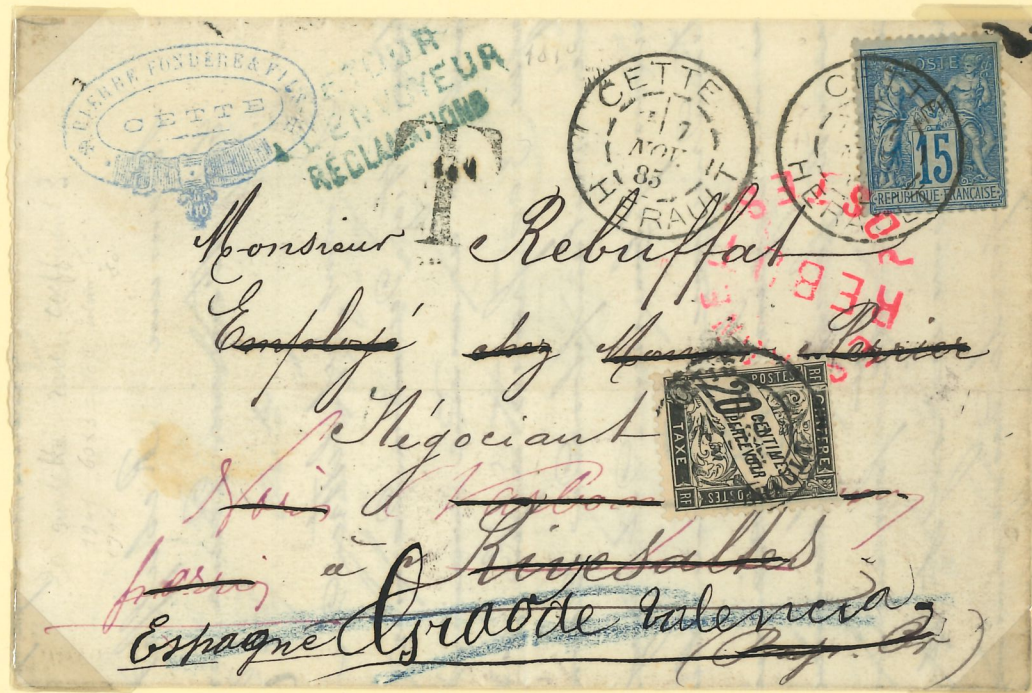 PIERRE FONDERE & FILS
CETTE
RETOUR
À L'ENVOYEUR
RÉCLAMATIONS
T
CETTE
7
NOV.
85
HÉRAULT
CETTE
HÉRAULT
POSTE
15
REPUBLIQUE FRANÇAISE
Monsieur Rebuffat
Employé chez Monsieur Perrier
Négociant
RF POSTES RF
20 CENTIMES
À
PERCEVOIR
CHIFFRE
TAXE
RF POSTES RF
à Rivesaltes
Espagne Grao de Valencia